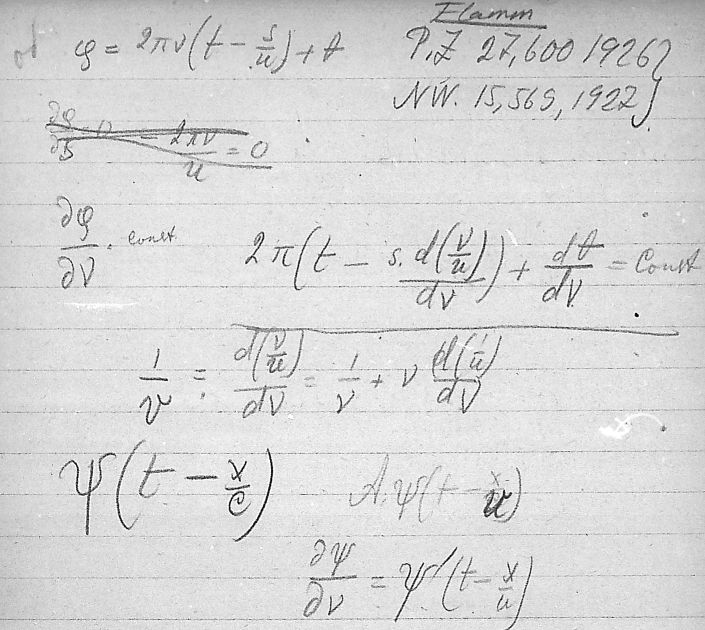 Flamm
φ = 2πν(t − s/u) + A P.Z 27,600 1926}
N.W. 15,569, 1927}
∂φ/∂s = 0 − 2πν/u = 0
∂φ/∂ν = const 2π(t − s. d(ν/u)/dν) + dA/dν = Const
1/v = d(ν/u)/dν = 1/ν + ν d(1/u)/dν
ψ(t − x/c) A.ψ(t − x/u)
∂ψ/∂ν = ψ'(t − x/u)